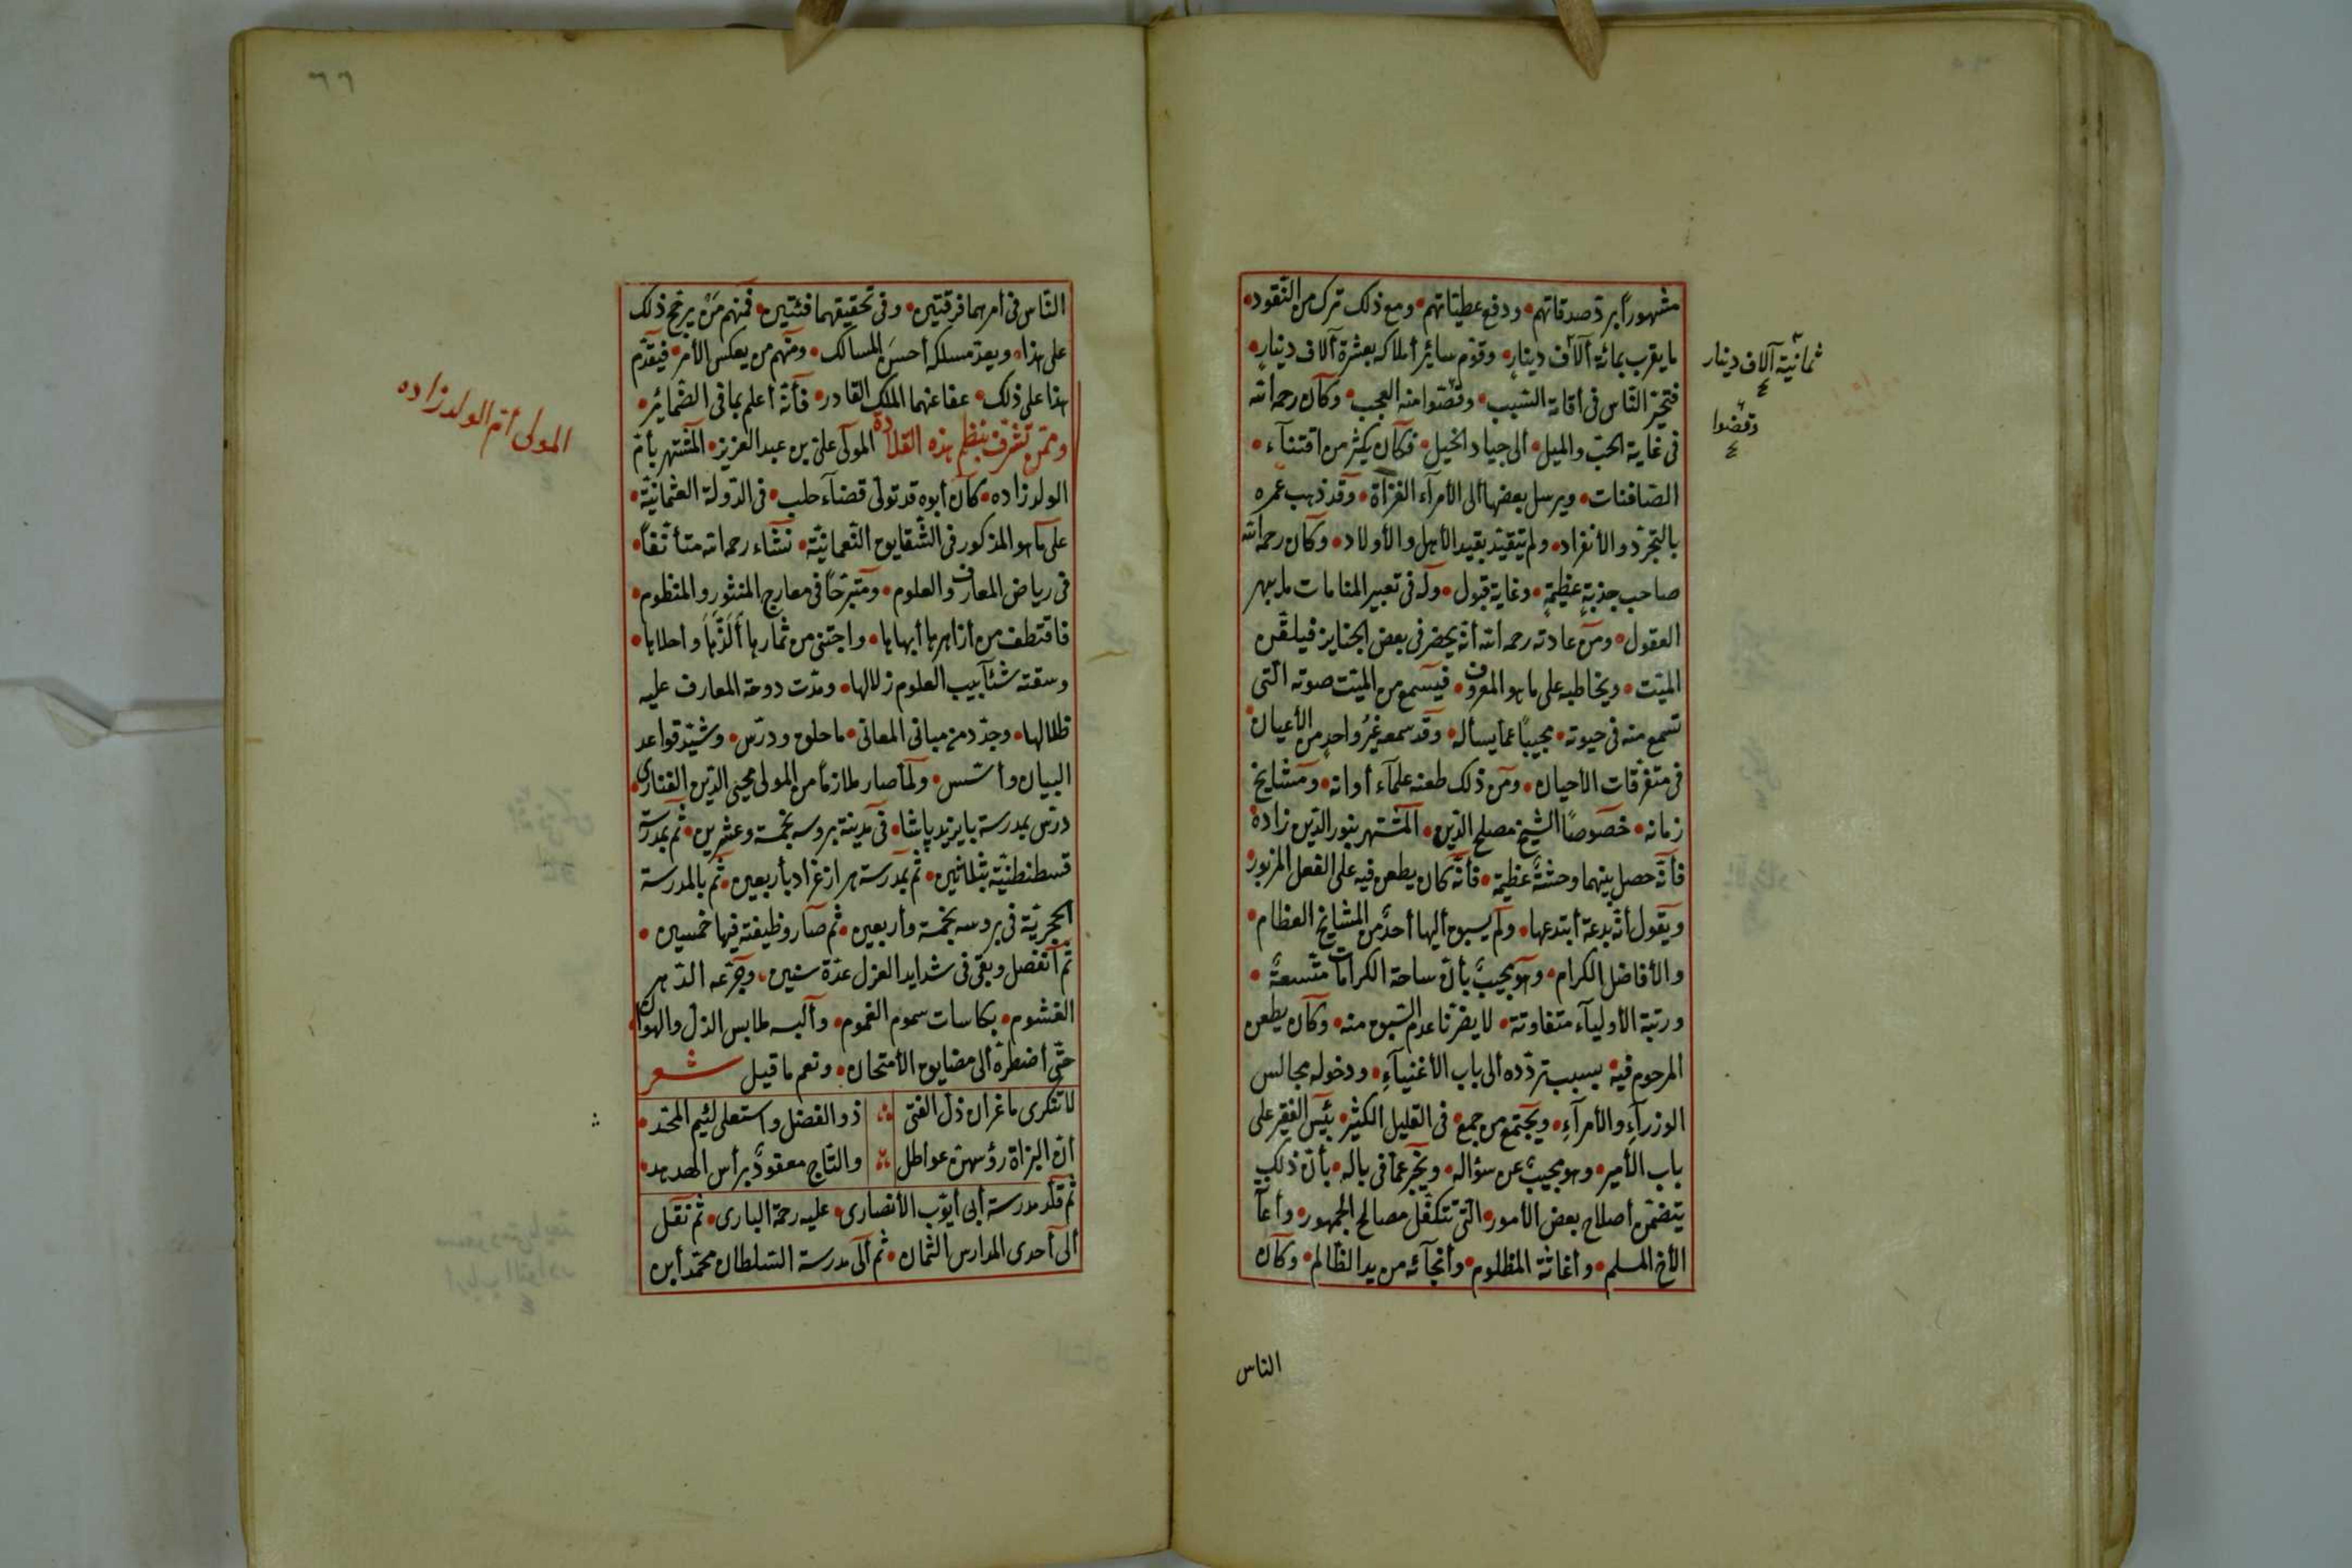 مشهوراً برد صدقاتهم • ودفع عطيّاتهم • ومع ذلك ترك من النّقود •
ما يقرب بمائة آلاف دينار • وقوّم سائر أملاكه بعشرة آلاف دينار •
فتحيّر النّاس في السّبب • وقضّوا منه العجب • وكان رحمه اللّه
في غاية الحبّ والميل • الى جياد الخيل • فكان يكثر من اقتناء •
الصّافنات • ويرسل بعضها الى الأمراء الغزاة • وقد ذهب عمره
بالتّجرّد والأنفراد • ولم يتقيّد بقيد الأهل والأولاد • وكان رحمه اللّه
صاحب جذبةٍ عظيمةٍ • وغاية قبول • وله في تعبير المنامات ما يبهر
العقول • ومن عادته رحمه اللّه أنّه يحضر في بعض الجنايز فيلقّن
الميّت • ويخاطبه على ما هو المعروف • فيسمع من الميّت صوته الّتى
تسمع منه في حيوته • مجيبًا عمّا يسأله • وقد سمعه غيرُ واحدٍ من الأعيان •
في متفرّقات الأحيان • ومن ذلك طعنه علماء أوانه • ومشايخ
زمانه • خصوصًا الشّيخ مصلح الدّين • المشتهر بنور الدّين زاده
فأنّه حصل بينهما وحشةٌ عظيمة • فأنّه كان يطعن فيه على الفعل المزبور •
ويقول أنّه بدعة أبتدعها • ولم يسبق أليها أحدٌ من المشايخ العظام •
والأفاضل الكرام • وهو يجيبُ بأنّ ساحة الكرامات متّسعةٌ •
ورتبة الأولياء متفاوتة • لا يضرّنا عدم السّبق منه • وكان يطعن
المرحوم فيه • بسبب تردّده الى باب الأغنياءِ • ودخوله مجالس
الوزراءِ والأمراءِ • ويجتمع من جمع • في القليل الكثير • بئس الفقير على
باب الأمير • وهو مجيبٌ عن سؤاله • ويخبر عمّا في باله • بأنّ ذلك
يتضمّن أصلاح بعض الأمور • الّتى تتكفّل مصالح الجمهور •
الأخ المسلم • وأغاثة المظلوم • وأنجائه من يد الظّالم • وكان
ثمانية آلاف دينار
وقضوا
الناس
٦٦
النّاس في أمرهما فرقتين • وفي تحقيقهما فئتين • فمنهم مَنْ يرجّح ذلك
على هذا • ويعدّ مسلكه أحسنَ المسالك • ومنهم من يعكس الأمر • فيقدّم
هذا على ذلك • عفا عنهما الملك القادر • فأنّه أعلم بما في الضّمائر •
وممّن تشرّف بنظم هذه القلادة المولى علىّ بن عبد العزيز • المشتهر بأمّ
الولد زاده • كان أبوه قد تولّى قضاء حلب • في الدّولة العثمانيّة •
على ما هو المذكور في الشّقايق النّعمانيّة • نشاء رحمه اللّه متأنّقاً •
في رياض المعارف والعلوم • ومتبرّحًا في معارج المنثورِ والمنظوم •
فاقتطف من أزاهرها أبهاها • واجتنى من ثمارها ألذّها وأحلاها •
وسقته شئآبيب العلوم زلالها • ومدّت دوحة المعارف عليه
ظلالها • وجدّد من مبانى المعانى • ما خلق ودرس • وشيّد قواعد
البيان وأسّس • ولمّا صار ملازماً من المولى محيى الدّين الفنارى •
درّس بمدرسة بايزيد پاشا • في مدينة بروسه بخمسة وعشرين • ثم بمدرسة
قسطنطنيّة بثلاثين • ثم بمدرسة هرازغراد بأربعين • ثم بالمدرسة
الحجريّة في بروسه بخمسة وأربعين • ثم صار وظيفته فيها خمسين •
ثم أنفصل وبقى في شدايد العزل عدّة سنين • وجرّعه الدّهر
الغشوم • بكاسات سموم الغموم • وألبسه ملابس الذلّ والهوان •
حتّى أضطرّه ألى مضايق الأمتحان • ونعم ما قيل شعر
لا تنكرى ما غرأن ذلّ الفتى ذو الفضل واستعلى لئيم المحتد •
أنّ البزاة رؤسهنّ عواطل والتّاج معقودٌ برأس الهدهد •
ثم قلّد مدرسة أبى أيّوب الأنصارى • عليه رحمة البارى • ثم نقل
ألى أحدى المدارس الثمان • ثم ألى مدرسة السّلطان محمّد أبن
المولى أمّ الولد زاده